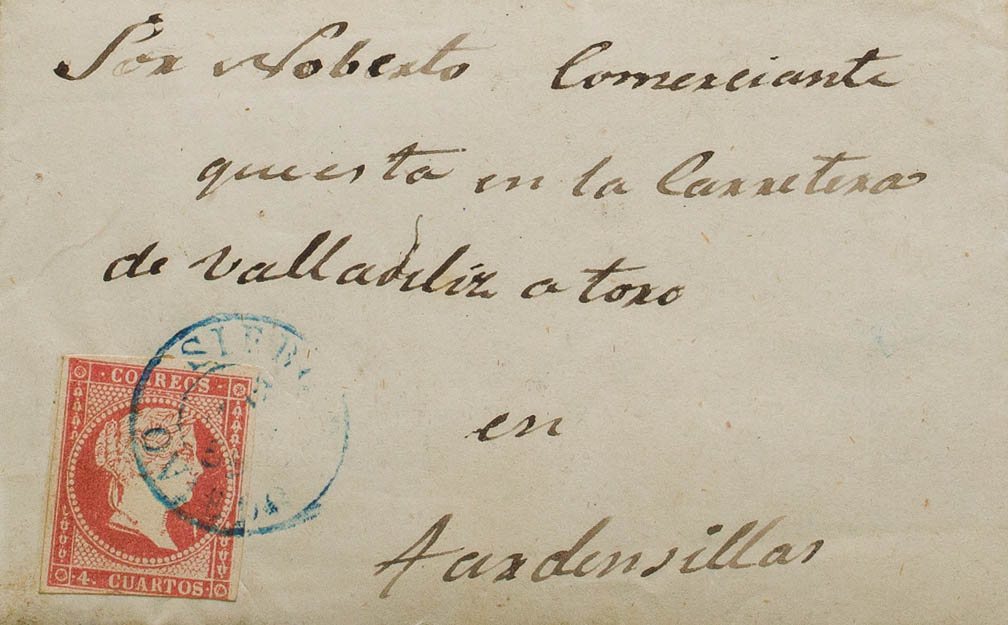 Sor Noberto Comerciante
que esta en la Carretera
de Valladeliz a toro
en
Tardensillas
CORREOS
4 CUARTOS
SIERO
OVIEDO